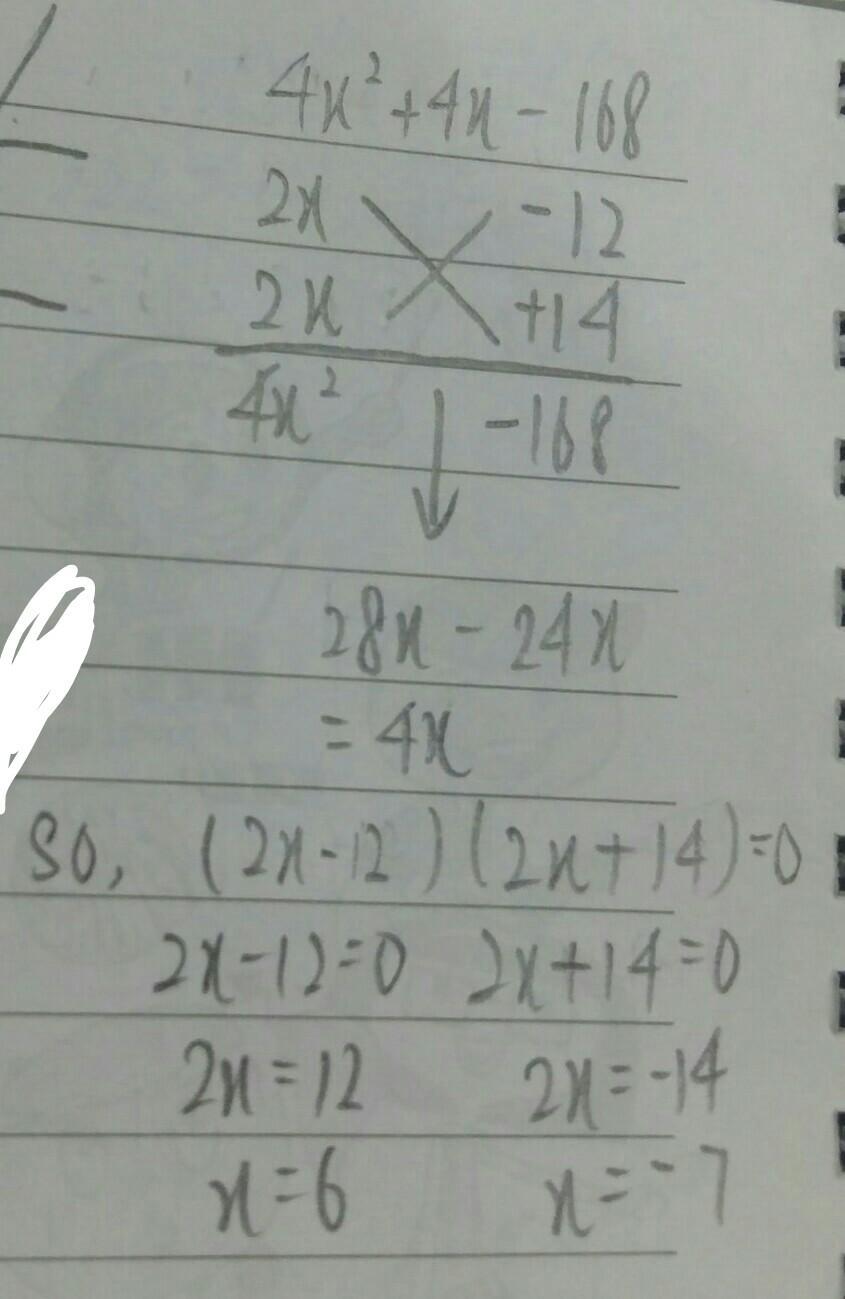 4x²+4x-168
2x -12
2x +14
4x² -168
28x - 24x
= 4x
So, (2x-12)(2x+14)=0
2x-12=0 2x+14=0
2x=12 2x=-14
x=6 x=-7